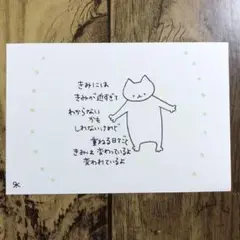 きみには
きみが近すぎて
わからない
かも
しれないけれど
重ねる日々で
きみは変わっているよ
変われているよ